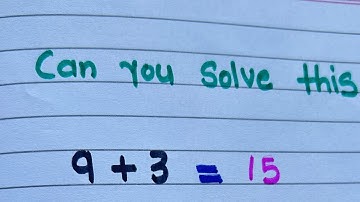 Can you solve this
9 + 3 = 15